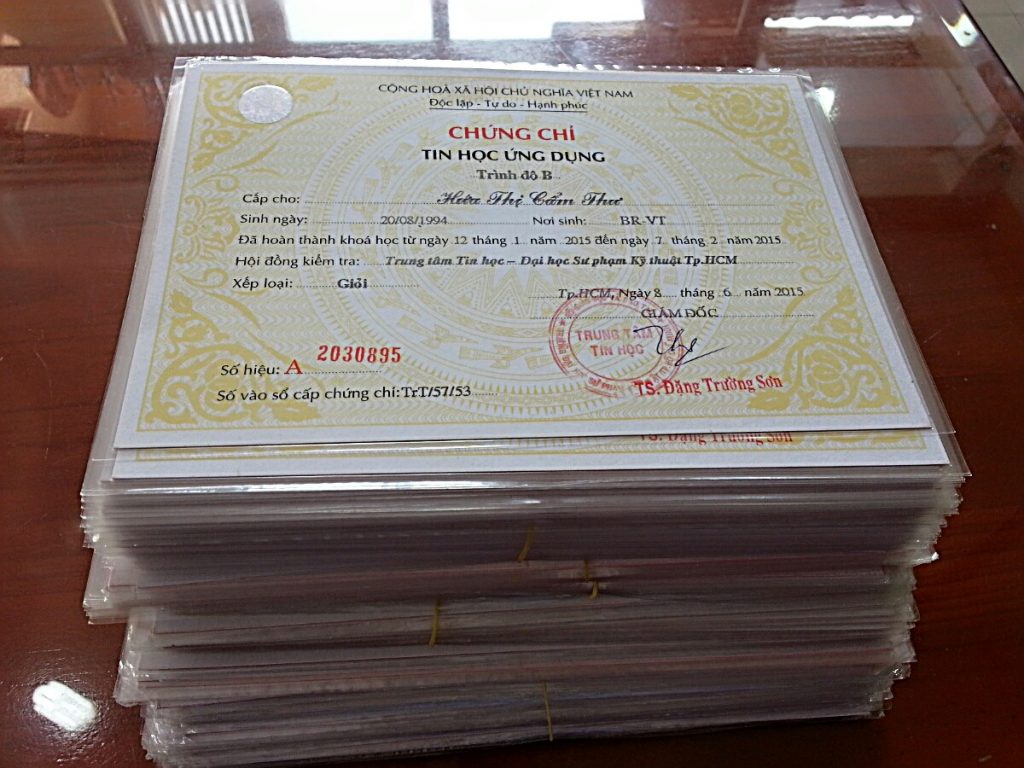 CỘNG HOÀ XÃ HỘI CHỦ NGHĨA VIỆT NAM
Độc lập - Tự do - Hạnh phúc
CHỨNG CHỈ
TIN HỌC ỨNG DỤNG
Trình độ B
Cấp cho: Hứa Thị Cẩm Thư
Sinh ngày: 20/08/1994 Nơi sinh: BR-VT
Đã hoàn thành khoá học từ ngày 12 tháng 1 năm 2015 đến ngày 7 tháng 2 năm 2015
Hội đồng kiểm tra: Trung tâm Tin học – Đại học Sư phạm Kỹ thuật Tp.HCM
Xếp loại: Giỏi
Tp.HCM, Ngày 8 tháng 6 năm 2015
GIÁM ĐỐC
TRUNG TÂM
TIN HỌC
Số hiệu: A 2030895
Số vào sổ cấp chứng chỉ: TrT/57/53
TS. Đặng Trường Sơn
TS. Đặng Trường Sơn